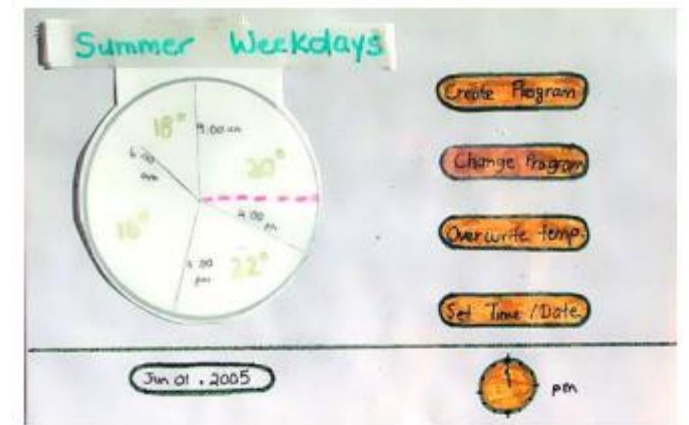 Summer Weekdays
18°
9:00 am
20°
6:00
am
4:00
pm
16°
22°
pm
Create Program
Change Program
Overwrite temp.
Set Time / Date
Jun 01 . 2005
pm